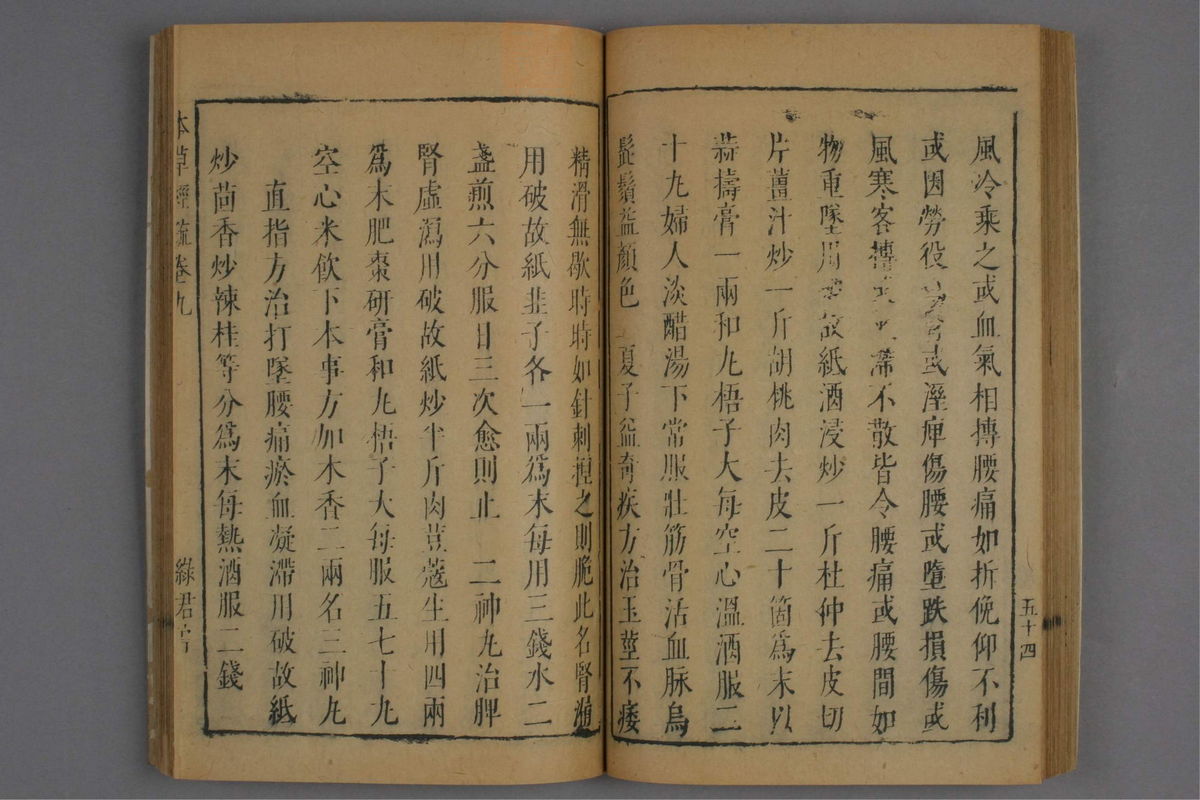 五十四
風冷乘之或血氣相摶腰痛如折俛仰不利
或因勞役 或溼痺傷腰或墮跌損傷或
風寒客摶或 滯不散皆令腰痛或腰間如
物重墜用 故紙酒浸炒一斤杜仲去皮切
片薑汁炒一斤胡桃肉去皮二十箇爲末以
蒜擣膏一兩和丸梧子大每空心溫酒服二
十丸婦人淡醋湯下常服壯筋骨活血脉烏
髭鬚益顏色 夏子益奇疾方治玉莖不痿
精滑無歇時時如針刺捏之則脆此名腎漏
用破故紙韭子各一兩爲末每用三錢水二
盞煎六分服日三次愈則止 二神丸治脾
腎虛瀉用破故紙炒半斤肉荳蔻生用四兩
爲末肥棗研膏和丸梧子大每服五七十丸
空心米飮下本事方加木香二兩名三神丸
直指方治打墜腰痛瘀血凝滯用破故紙
炒茴香炒辣桂等分爲末每熱酒服二錢
本草經疏卷九
綠君亭